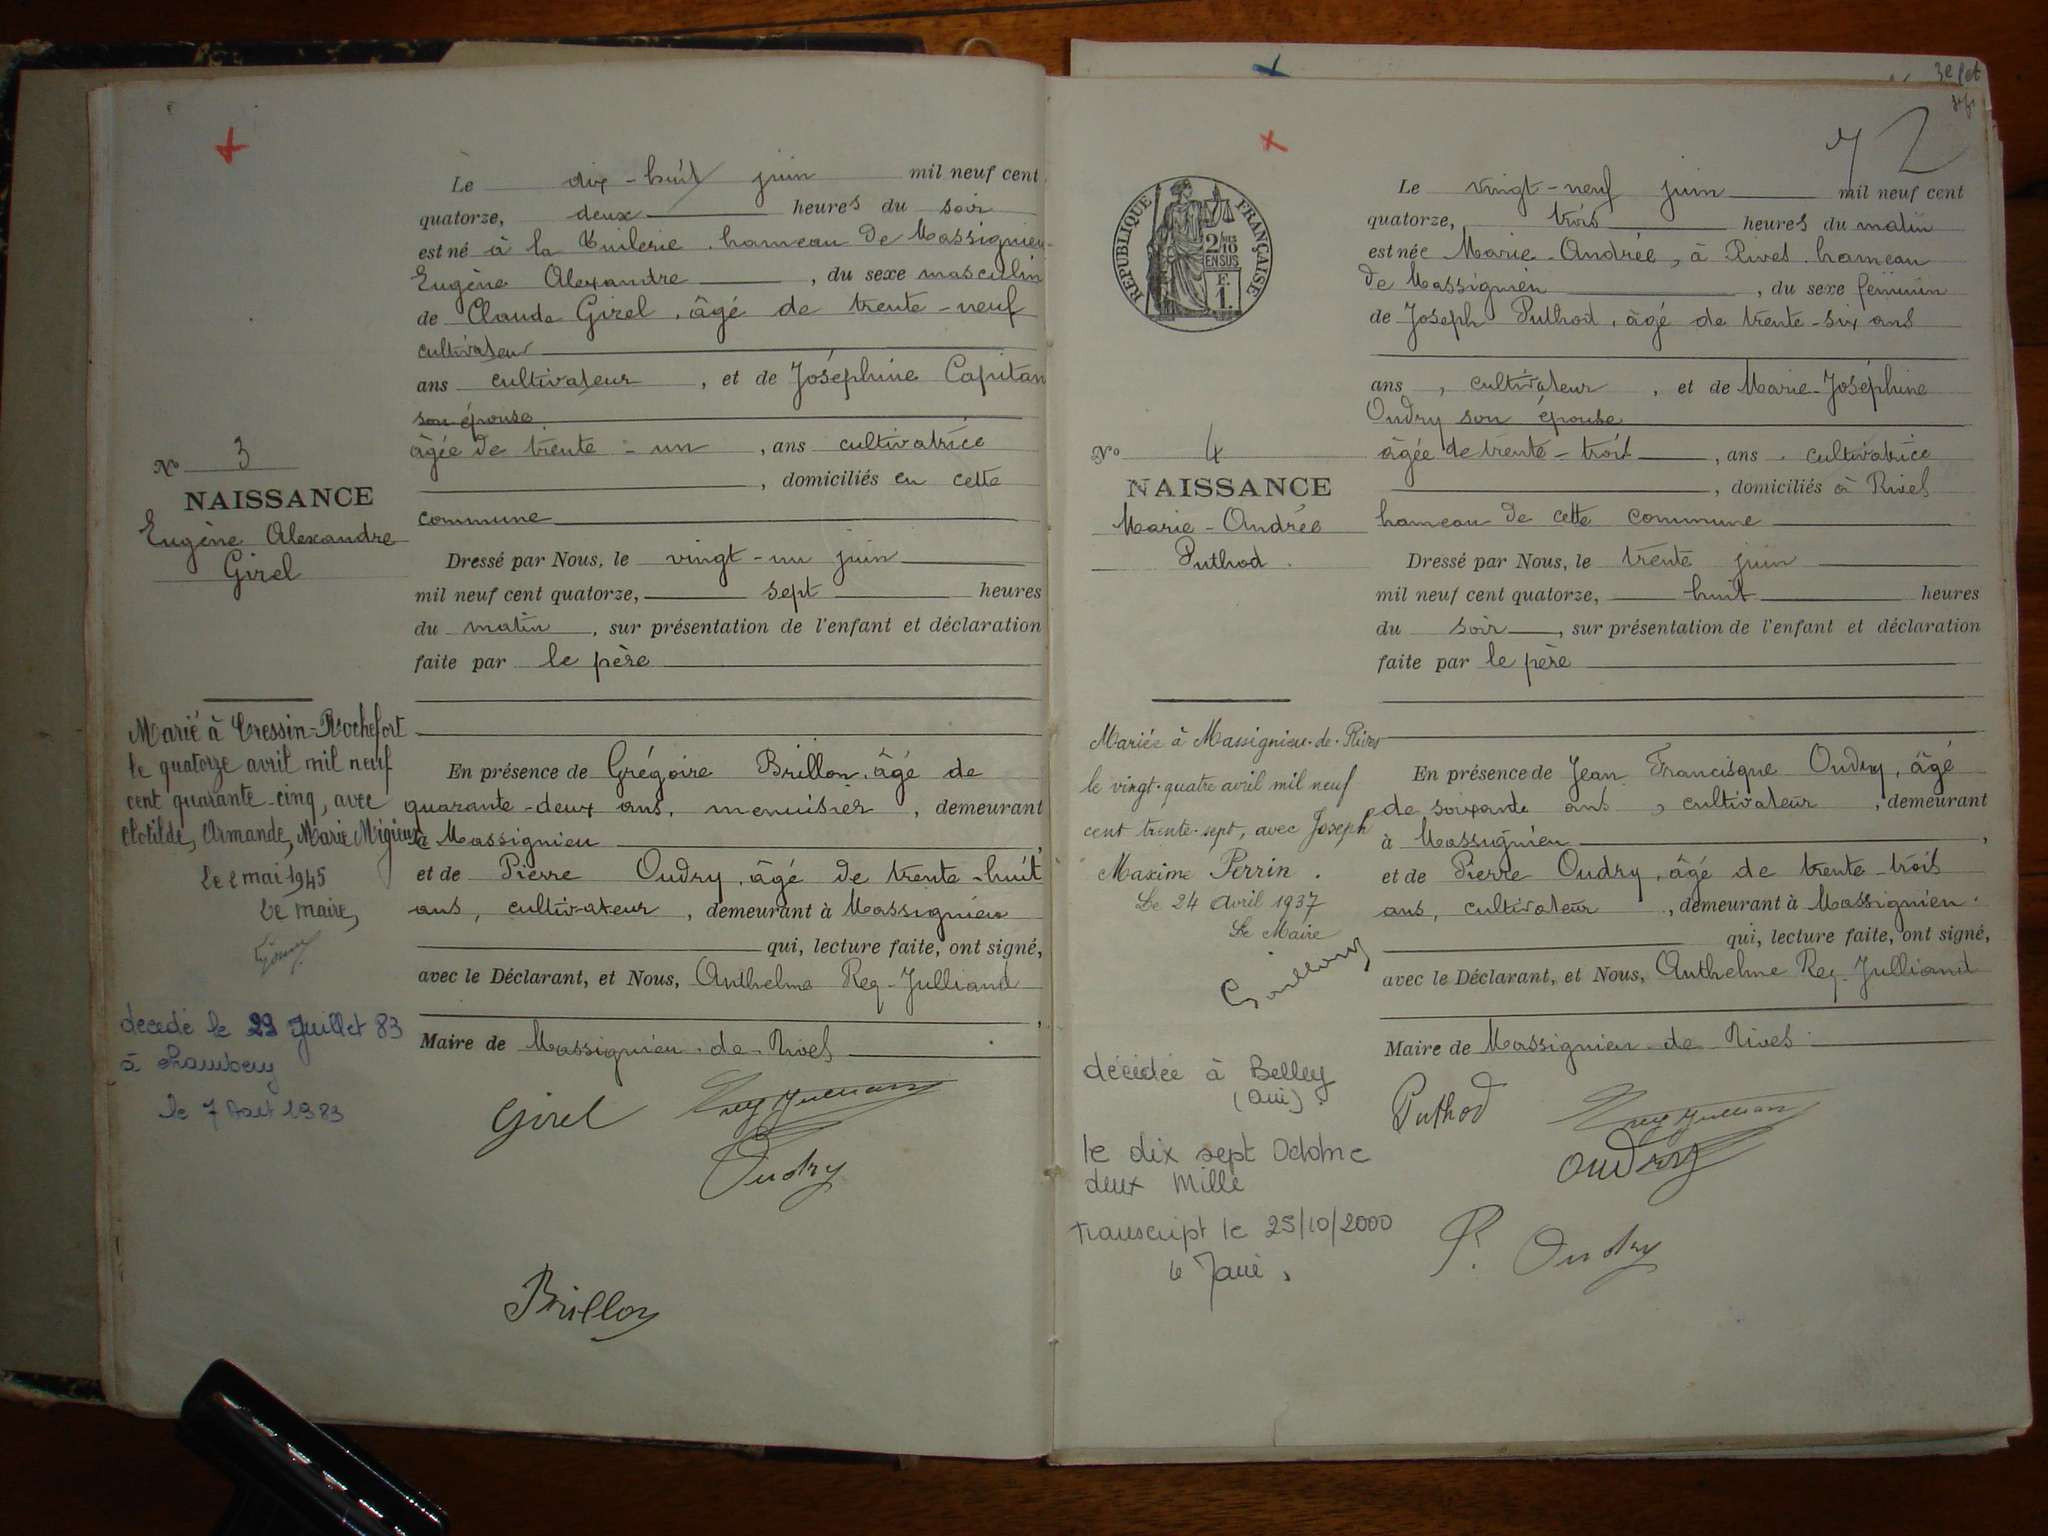 Le dix-huit juin mil neuf cent
quatorze, deux heures du soir
est né à la Tuilerie hameau de Massignieu
Eugène Alexandre, du sexe masculin
de Claude Girel, âgé de trente-neuf
cultivateur
ans cultivateur, et de Joséphine Capitan
son épouse
âgée de trente-un, ans cultivatrice
, domiciliés en cette
commune
N° 3
NAISSANCE
Eugène Alexandre
Girel
Dressé par Nous, le vingt-un juin
mil neuf cent quatorze, sept heures
du matin, sur présentation de l'enfant et déclaration
faite par le père
Marié à Cressin-Rochefort
le quatorze avril mil neuf
cent quarante-cinq, avec
Clotilde, Armande, Marie Migieux
Le 2 mai 1945
Le Maire,
En présence de Grégoire Brillon, âgé de
quarante-deux ans, menuisier, demeurant
à Massignieu,
et de Pierre Oudry, âgé de trente-huit
ans, cultivateur, demeurant à Massignieu
qui, lecture faite, ont signé,
avec le Déclarant, et Nous, Anthelme Rey-Julliand
,
Maire de Massignieu-de-Rives
décédé le 29 Juillet 83
à Chambery
le 7 Aout 1983
Girel
Rey Julliand
Oudry
Brillon
3e
72
RÉPUBLIQUE FRANÇAISE
2/10
EN SUS
F.
1.
Le vingt-neuf juin mil neuf cent
quatorze, trois heures du matin
est née Marie-Andrée, à Rives hameau
de Massignieu, du sexe féminin
de Joseph Puthod, âgé de trente-six ans
ans, cultivateur, et de Marie-Joséphine
Oudry son épouse
âgée de trente-trois, ans cultivatrice
, domiciliés à Rives
hameau de cette commune
N° 4
NAISSANCE
Marie-Andrée
Puthod.
Dressé par Nous, le trente juin
mil neuf cent quatorze, huit heures
du soir, sur présentation de l'enfant et déclaration
faite par le père
Mariée à Massignieu-de-Rives
le vingt-quatre avril mil neuf
cent trente-sept, avec Joseph
Maxime Perrin.
Le 24 Avril 1937
Le Maire
En présence de Jean Francisque Oudry, âgé
de soixante ans, cultivateur, demeurant
à Massignieu,
et de Pierre Oudry, âgé de trente-trois
ans, cultivateur, demeurant à Massignieu.
qui, lecture faite, ont signé,
avec le Déclarant, et Nous, Anthelme Rey-Julliand
Maire de Massignieu-de Rives.
décédée à Belley
(Ain).
le dix sept Octobre
deux Mille
transcript le 25/10/2000
Puthod
Rey Julliand
Oudry
P. Oudry